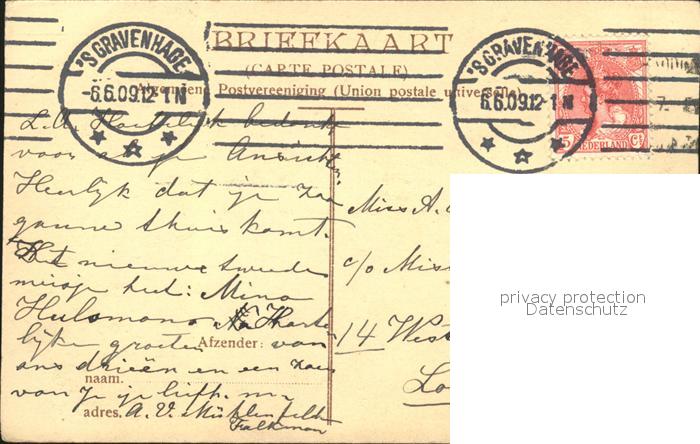 'S GRAVENHAGE
-6.6.09.12-1N
BRIEFKAART
(CARTE POSTALE)
Algemeene Postvereeniging (Union postale universelle)
'S GRAVENHAGE
6.6.09.12-1N
5 Ct
NEDERLAND
L. M. Hartelijk bedankt
voor al je Ansicht
Heerlijk dat je zoo
gauw thuis komt.
Het nieuwe tweede
meisje heet: Mina
Hulsmans Harte
lijke groeten van
ons drieën en een zoen
van je je liefh.
Afzender:
naam.
adres.
A. V.
Miss A.
c/o Miss
14 West
Lo
privacy protection
Datenschutz